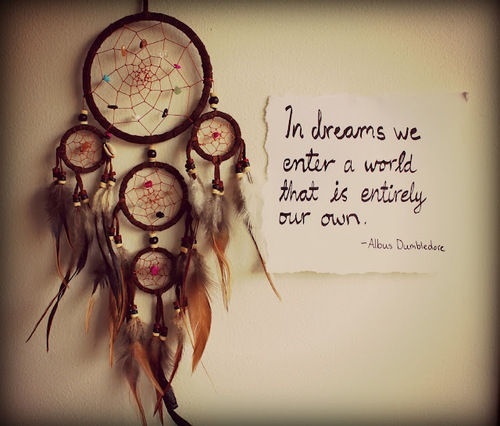 In dreams we
enter a world
that is entirely
our own.
-Albus Dumbledore